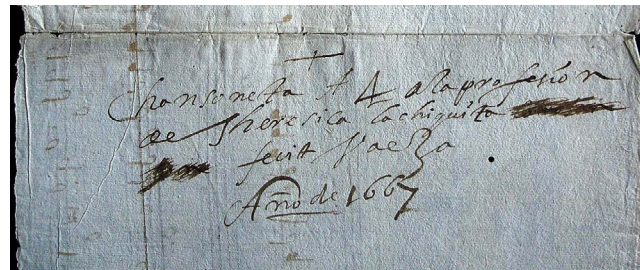 Chansoneta A 4 a la profesion
de Theresica la chiquita
fecit Vaesa
Año de 1667